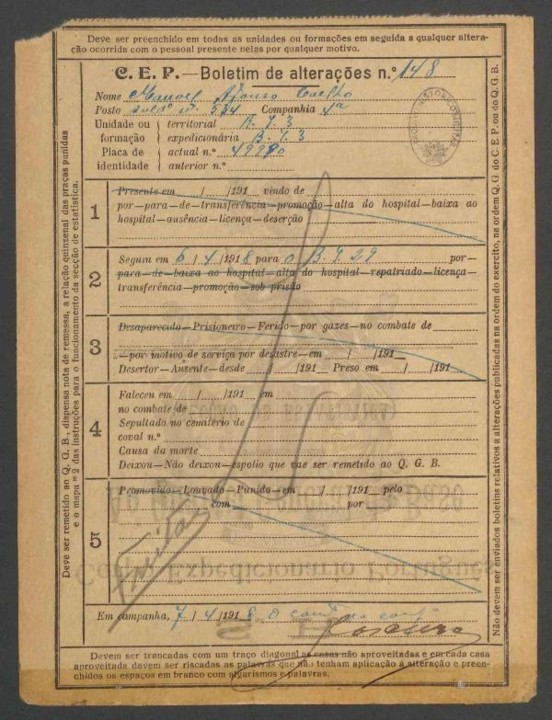 Deve ser preenchido em todas as unidades ou formações em seguida a qualquer altera-
ção ocorrida com o pessoal presente nelas por qualquer motivo.
C. E. P.—Boletim de alterações n.º 148
Nome Manoel Afonso Coelho
Posto sold. nº 534 Companhia 4ª
Unidade ou formação
territorial B. I. 3
expedicionária B. I. 3
Placa de identidade
actual n.º 49990
anterior n.º
1
Presente em / /191 vindo de
por—para—de—transferência—promoção—alta do hospital—baixa ao
hospital—ausência—licença—deserção
2
Seguiu em 6/4/1918 para o B. I. 29 por—
para—de—baixa ao hospital—alta do hospital—repatriado—licença—
transferência—promoção—sob prisão
3
Desaparecido—Prisioneiro—Ferido—por gazes—no combate de
—por motivo de serviço por desastre—em / /191
Desertor—Ausente—desde /191 Preso em / /191
4
Faleceu em / /191 em
no combate de
Sepultado no cemitério de
coval n.º
Causa da morte
Deixou—Não deixou—espolio que vae ser remetido ao Q. G. B.
5
Promovido—Louvado—Punido—em / /191 pelo
com por
Em campanha, 7/4/1918. O
Devem ser trancadas com um traço diagonal as casas não aproveitadas e em cada casa
aproveitada devem ser riscadas as palavras que não tenham aplicação á alteração e preen-
chidos os espaços em branco com algarismos e palavras.
Deve ser remetido ao Q. G. B., dispensa nota de remessa, a relação quinzenal das praças punidas
e o mapa nº 2 das instruções para o funcionamento da secção de estatistica.
Não devem ser enviados boletins relativos a alterações publicadas na ordem do exercito, na ordem Q. G. do C. E. P. ou do Q. G. B.
Corpo Expedicionário Português